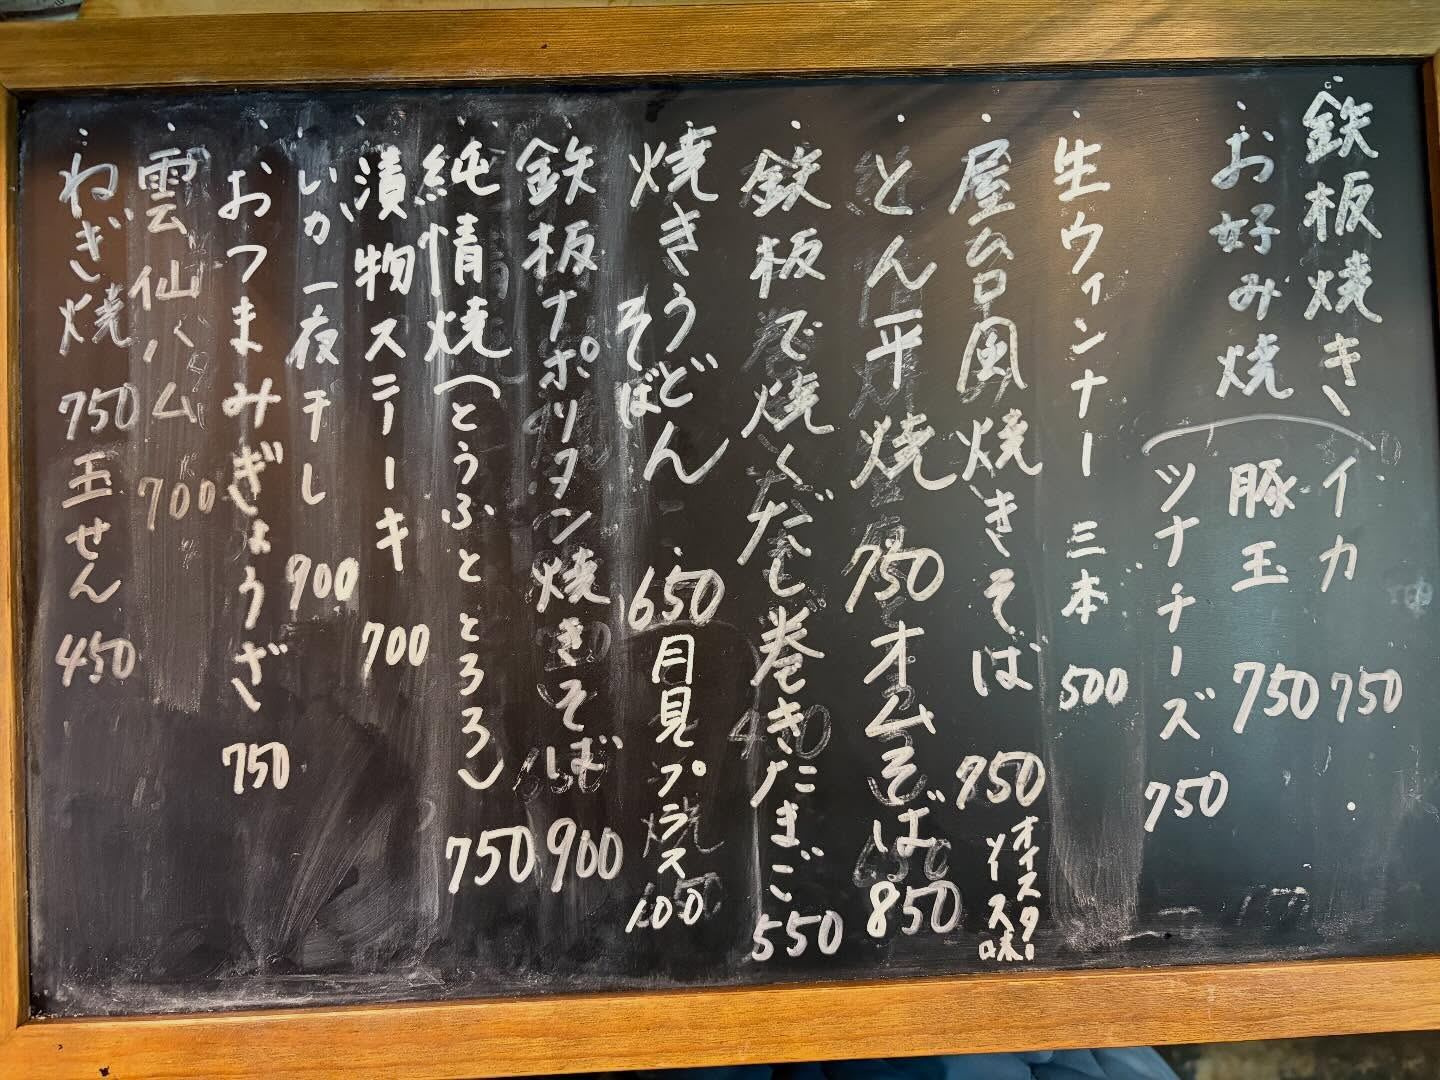 鉄板焼き イカ 750
お好み焼 豚玉 750
ツナチーズ 750
生ウィンナー 三本 500
屋台風焼きそば 750
オイスターソース味
とん平焼 750 オムそば 850
鉄板で焼くだし巻きたまご 550
焼きうどん 650 月見プラス100
そば
鉄板ナポリタン焼きそば 900
純情焼(とうふととろろ) 750
漬物ステーキ 700
いか一夜干し 900
おつまみぎょうざ 750
雲仙ハム 700
ねぎ焼 750 玉せん 450